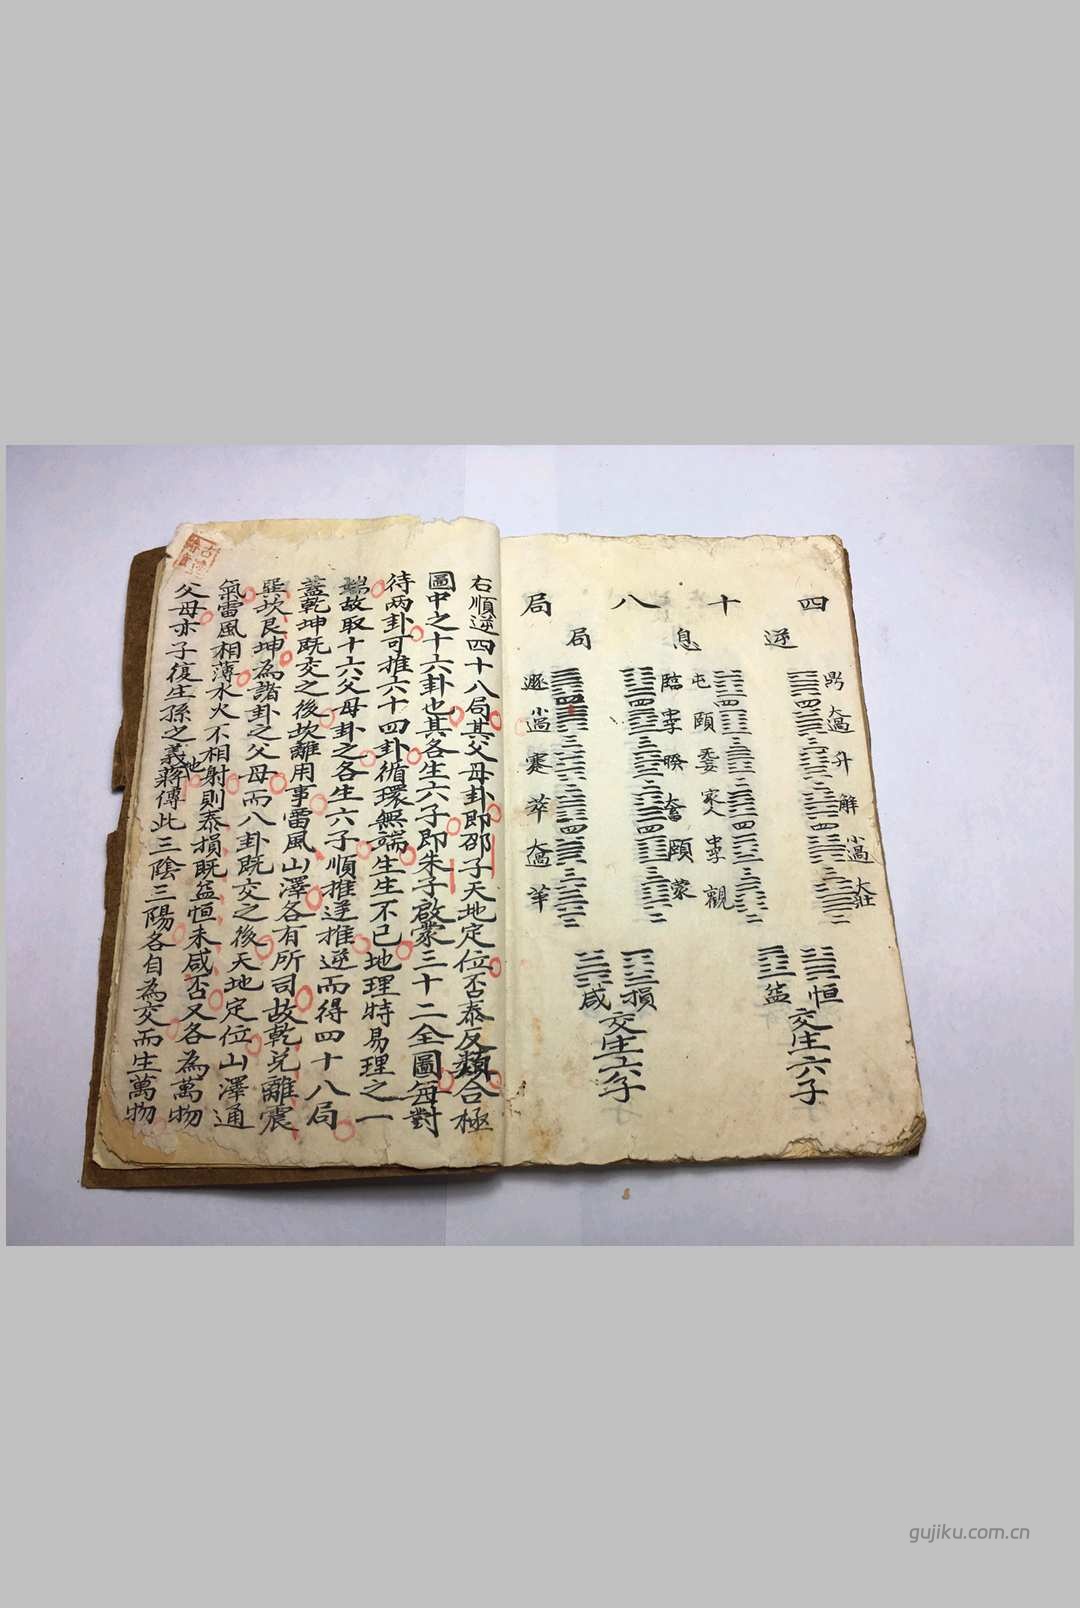 四十八局
逆息局
鼎 大過 升 解 小過 大壯
恒
益
交生六子
屯 頤 家人 觀
臨 睽 頤 蒙
損
咸
交生六子
遯 小過 蹇 萃 大過 萃
右順逆四十八局其父母卦即邵子天地定位否泰反類合極
圖中之十六卦也其各生六子即朱子啟蒙三十二全圖每對
待兩卦可推六十四卦循環無端生生不已地理特易理之一
端故取十六父母卦之各生六子順推逆推逆而得四十八局
蓋乾坤既交之後坎離用事雷風山澤各有所司故乾兌離震
巽坎艮坤為諸卦之父母而八卦既交之後天地定位山澤通
氣雷風相薄水火不相射則泰損既益恒未咸否又各為萬物
父母亦子復生孫之義也蔣傳此三陰三陽各自為交而生萬物
gujiku.com.cn